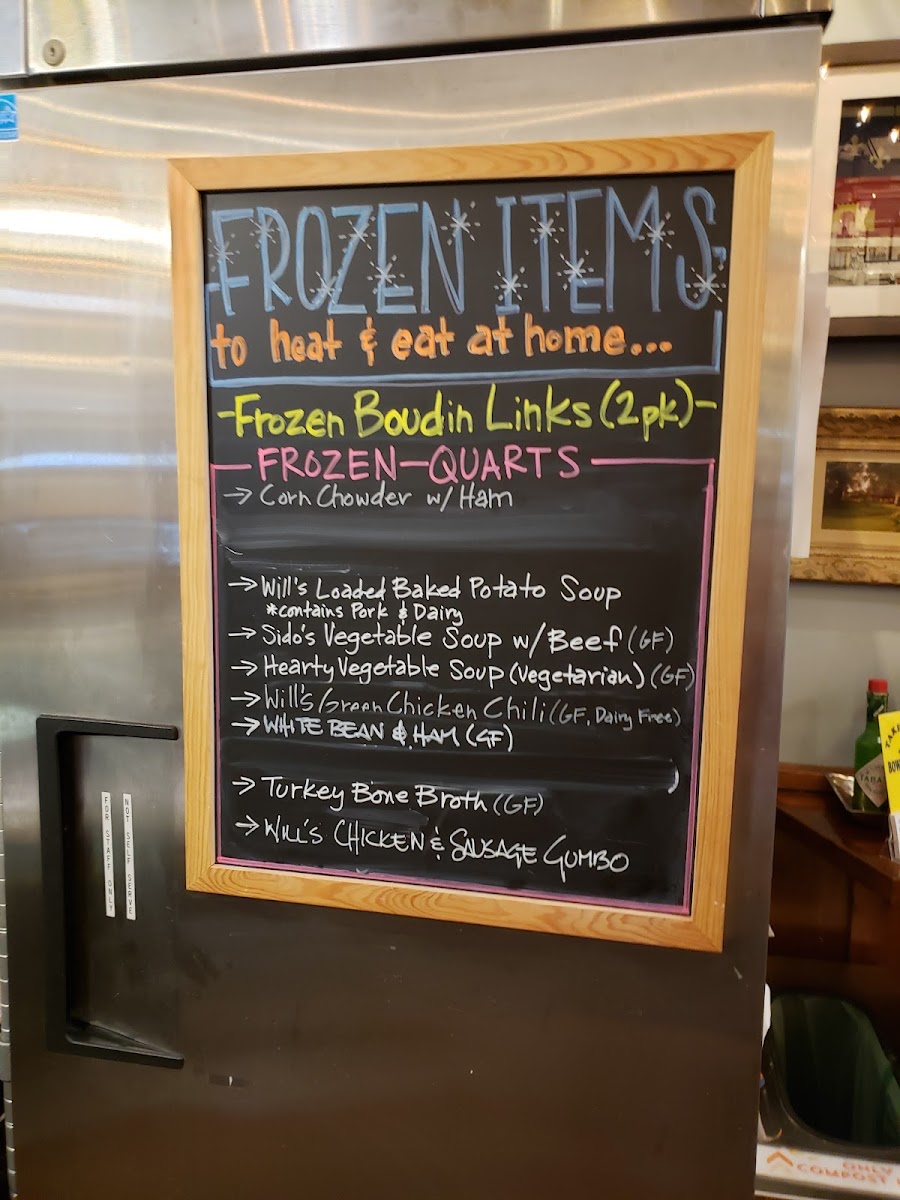 FROZEN ITEMS
to heat & eat at home...
-Frozen Boudin Links (2pk)-
FROZEN-QUARTS
→ Corn Chowder w/ Ham
→ Will's Loaded Baked Potato Soup
*contains Pork & Dairy
→ Sido's Vegetable Soup w/ Beef (GF)
→ Hearty Vegetable Soup (Vegetarian) (GF)
→ Will's Green Chicken Chili (GF, Dairy Free)
→ WHITE BEAN & HAM (GF)
→ Turkey Bone Broth (GF)
→ WILL'S CHICKEN & SAUSAGE GUMBO
NOT SELF SERVE
FOR STAFF ONLY
TABA
ONLY
COMPOST